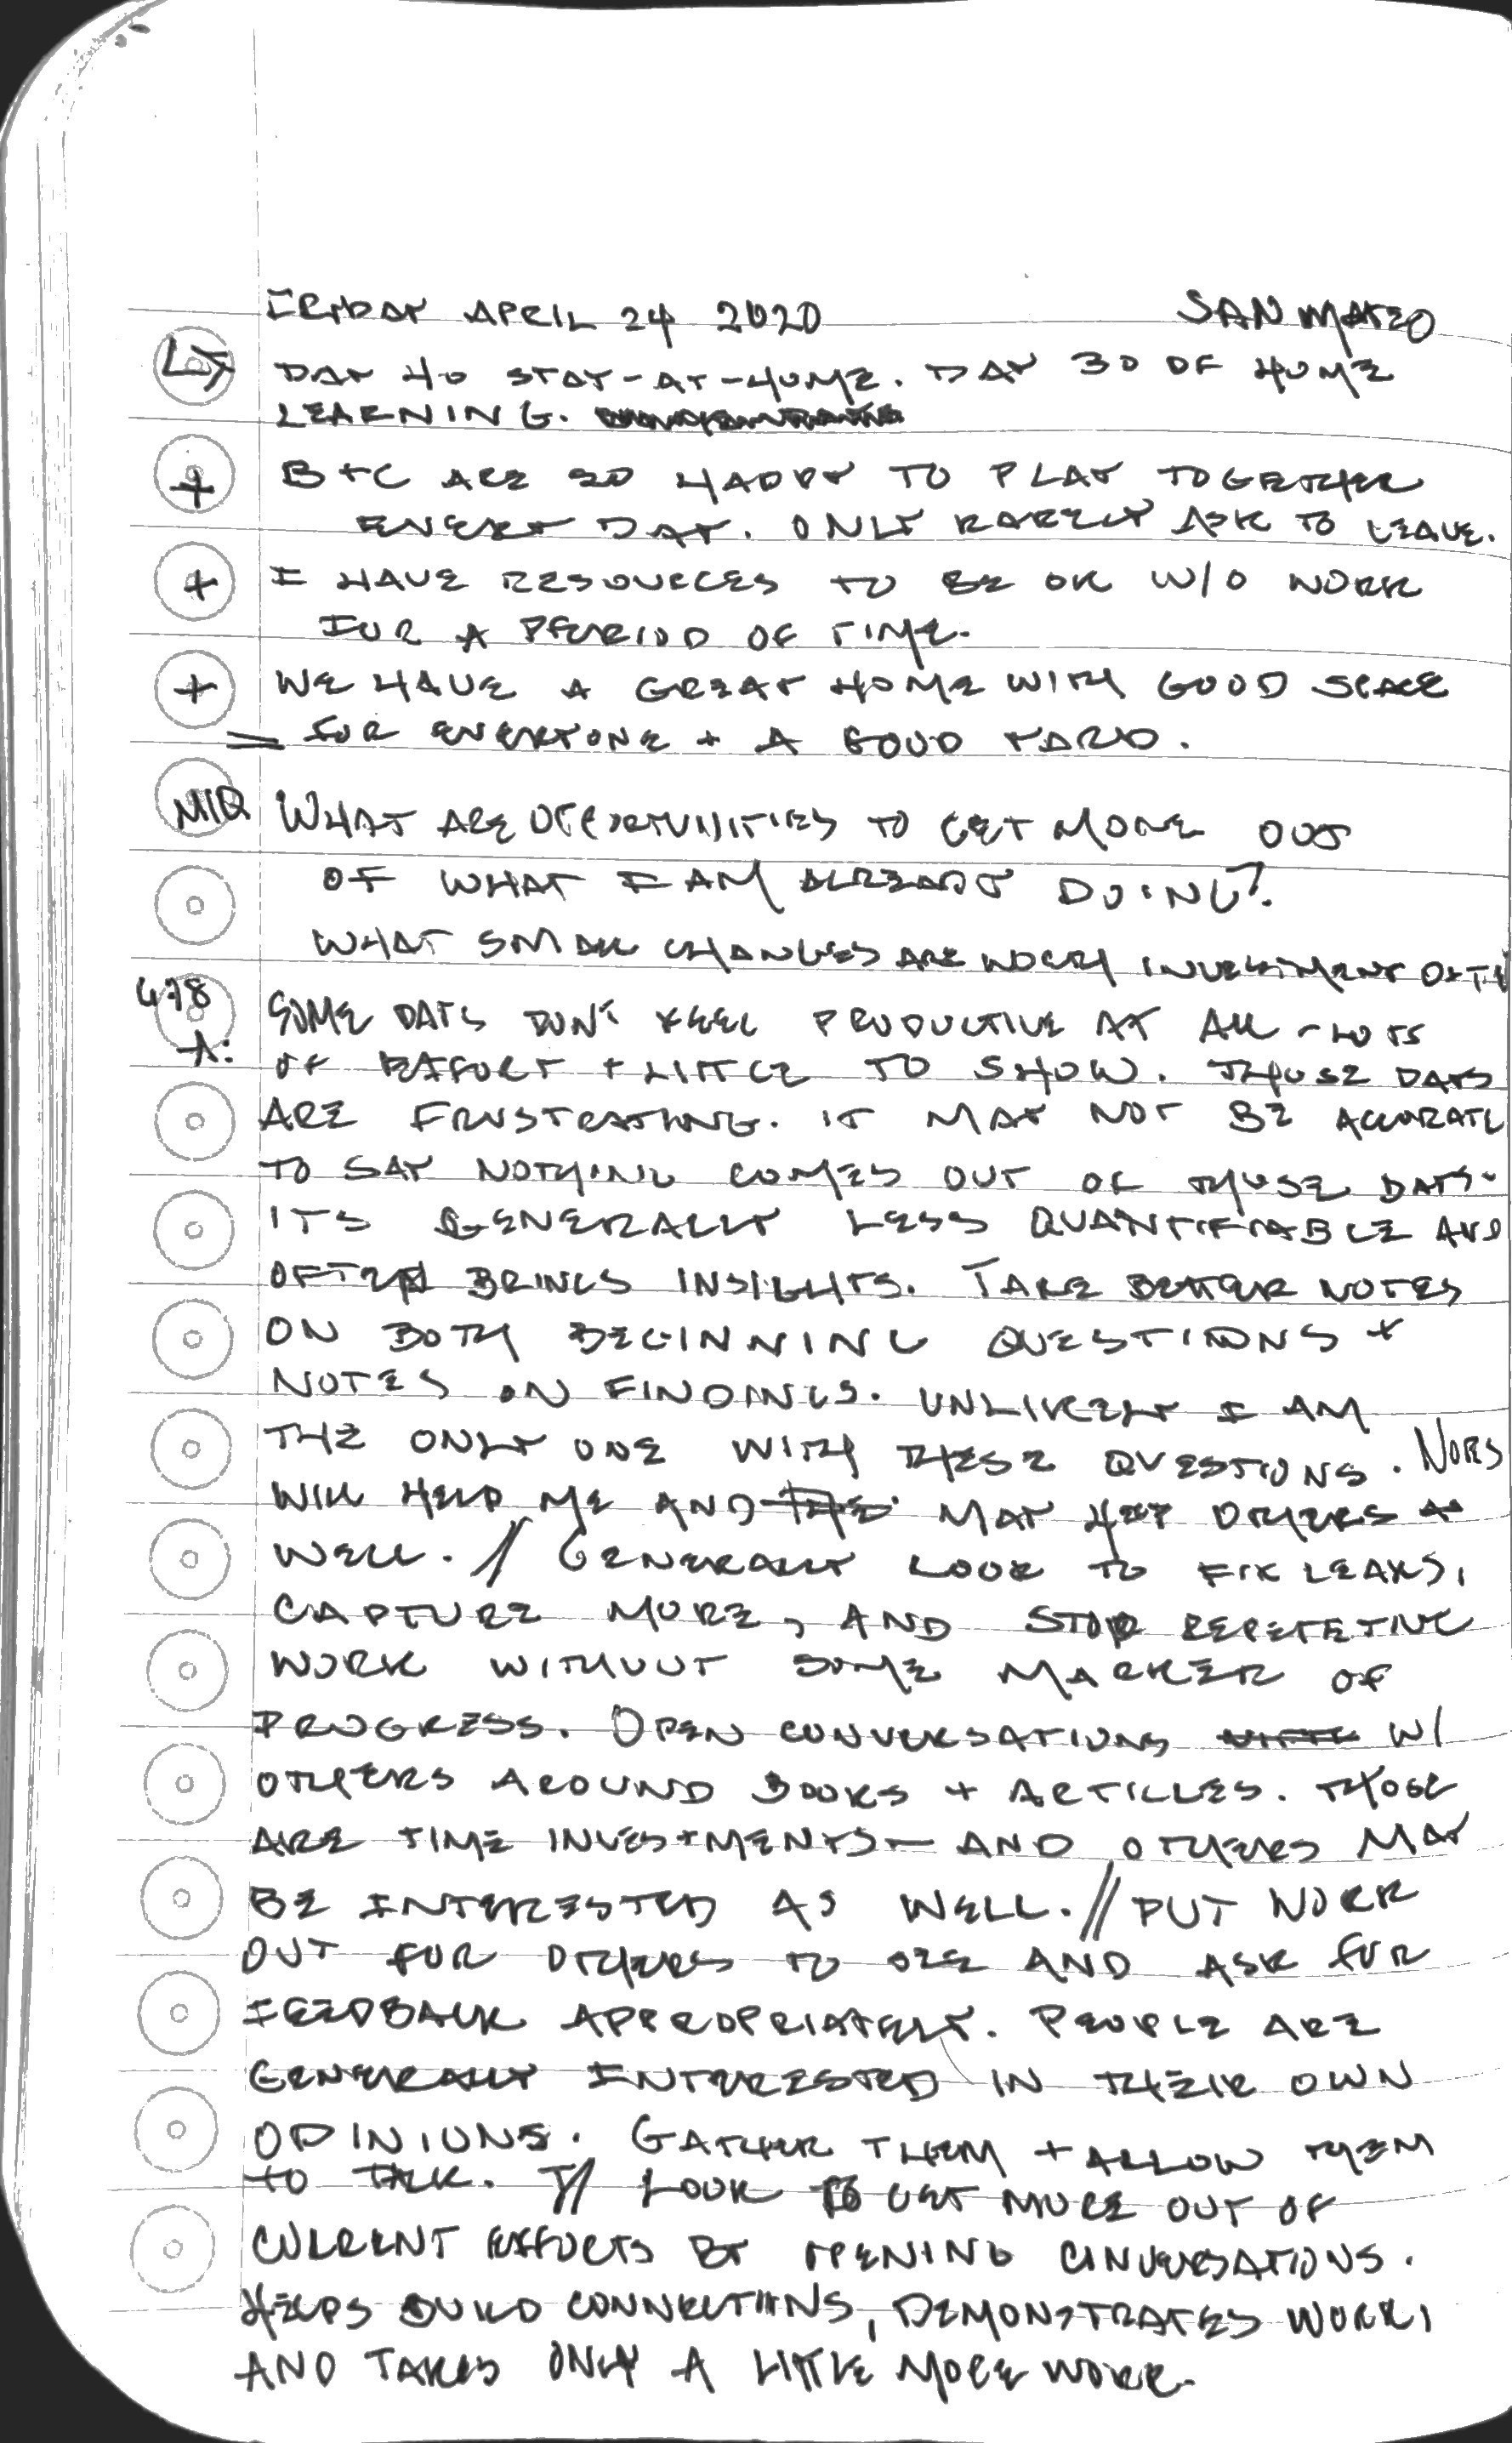 FRIDAY APRIL 24 2020 SAN MATEO
DAY 40 STAY-AT-HOME. DAY 30 OF HOME
LEARNING.
+ B+C ARE SO HAPPY TO PLAY TOGETHER
EVERY DAY. ONLY RARELY ASK TO LEAVE.
+ I HAVE RESOURCES TO BE OK W/O WORK
FOR A PERIOD OF TIME.
+ WE HAVE A GREAT HOME WITH GOOD SPACE
= FOR EVERYONE + A GOOD YARD.
MIQ WHAT ARE OPPORTUNITIES TO GET MORE OUT
OF WHAT I AM ALREADY DOING?
WHAT SMALL CHANGES ARE WORTH INVESTMENT OF
478 SOME DAYS DON'T FEEL PRODUCTIVE AT ALL - LOTS
A: OF EFFORT + LITTLE TO SHOW. THOSE DAYS
ARE FRUSTRATING. IT MAY NOT BE ACCURATE
TO SAY NOTHING COMES OUT OF THOSE DAYS-
ITS GENERALLY LESS QUANTIFIABLE AND
OFTEN BRINGS INSIGHTS. TAKE BETTER NOTES
ON BOTH BEGINNING QUESTIONS +
NOTES ON FINDINGS. UNLIKELY I AM
THE ONLY ONE WITH THESE QUESTIONS.
WILL HELP ME AND MAY HELP OTHERS AS
WELL. // GENERALLY LOOK TO FIX LEAKS,
CAPTURE MORE, AND STOP REPETETIVE
WORK WITHOUT SOME MARKER OF
PROGRESS. OPEN CONVERSATIONS W/
OTHERS AROUND BOOKS + ARTICLES. THOSE
ARE TIME INVESTMENTS - AND OTHERS MAY
BE INTERESTED AS WELL. // PUT WORK
OUT FOR OTHERS TO SEE AND ASK FOR
FEEDBACK APPROPRIATELY. PEOPLE ARE
GENERALLY INTERESTED IN THEIR OWN
OPINIONS. GATHER THEM + ALLOW THEM
TO TALK. // LOOK TO GET MORE OUT OF
CURRENT EFFORTS BY OPENING CONVERSATIONS.
HELPS BUILD CONNECTIONS, DEMONSTRATES WORK,
AND TAKES ONLY A LITTLE MORE WORK.